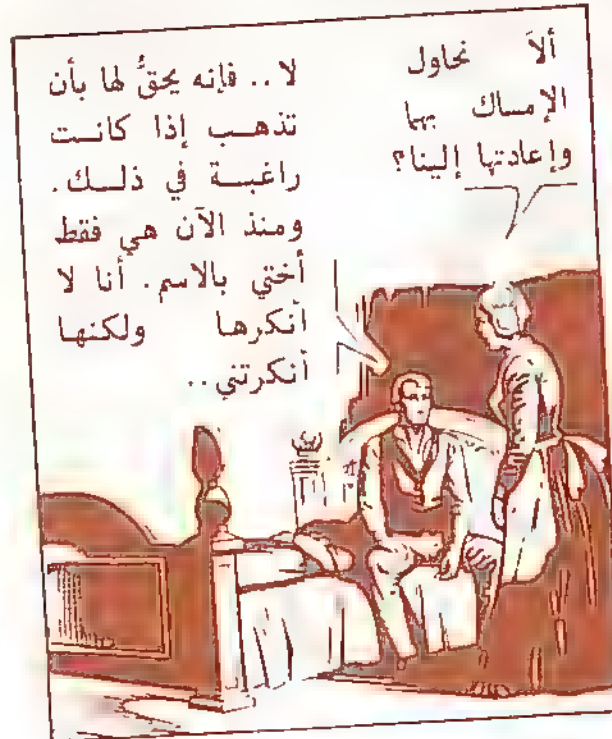 ألاَ نحاول
الإمساك بها
وإعادتها إلينا؟
لا.. فإنه يحقُّ لها بأن
تذهب إذا كانت
راغبة في ذلك.
ومنذ الآن هي فقط
أختي بالاسم. أنا لا
أنكرها ولكنها
أنكرتني..